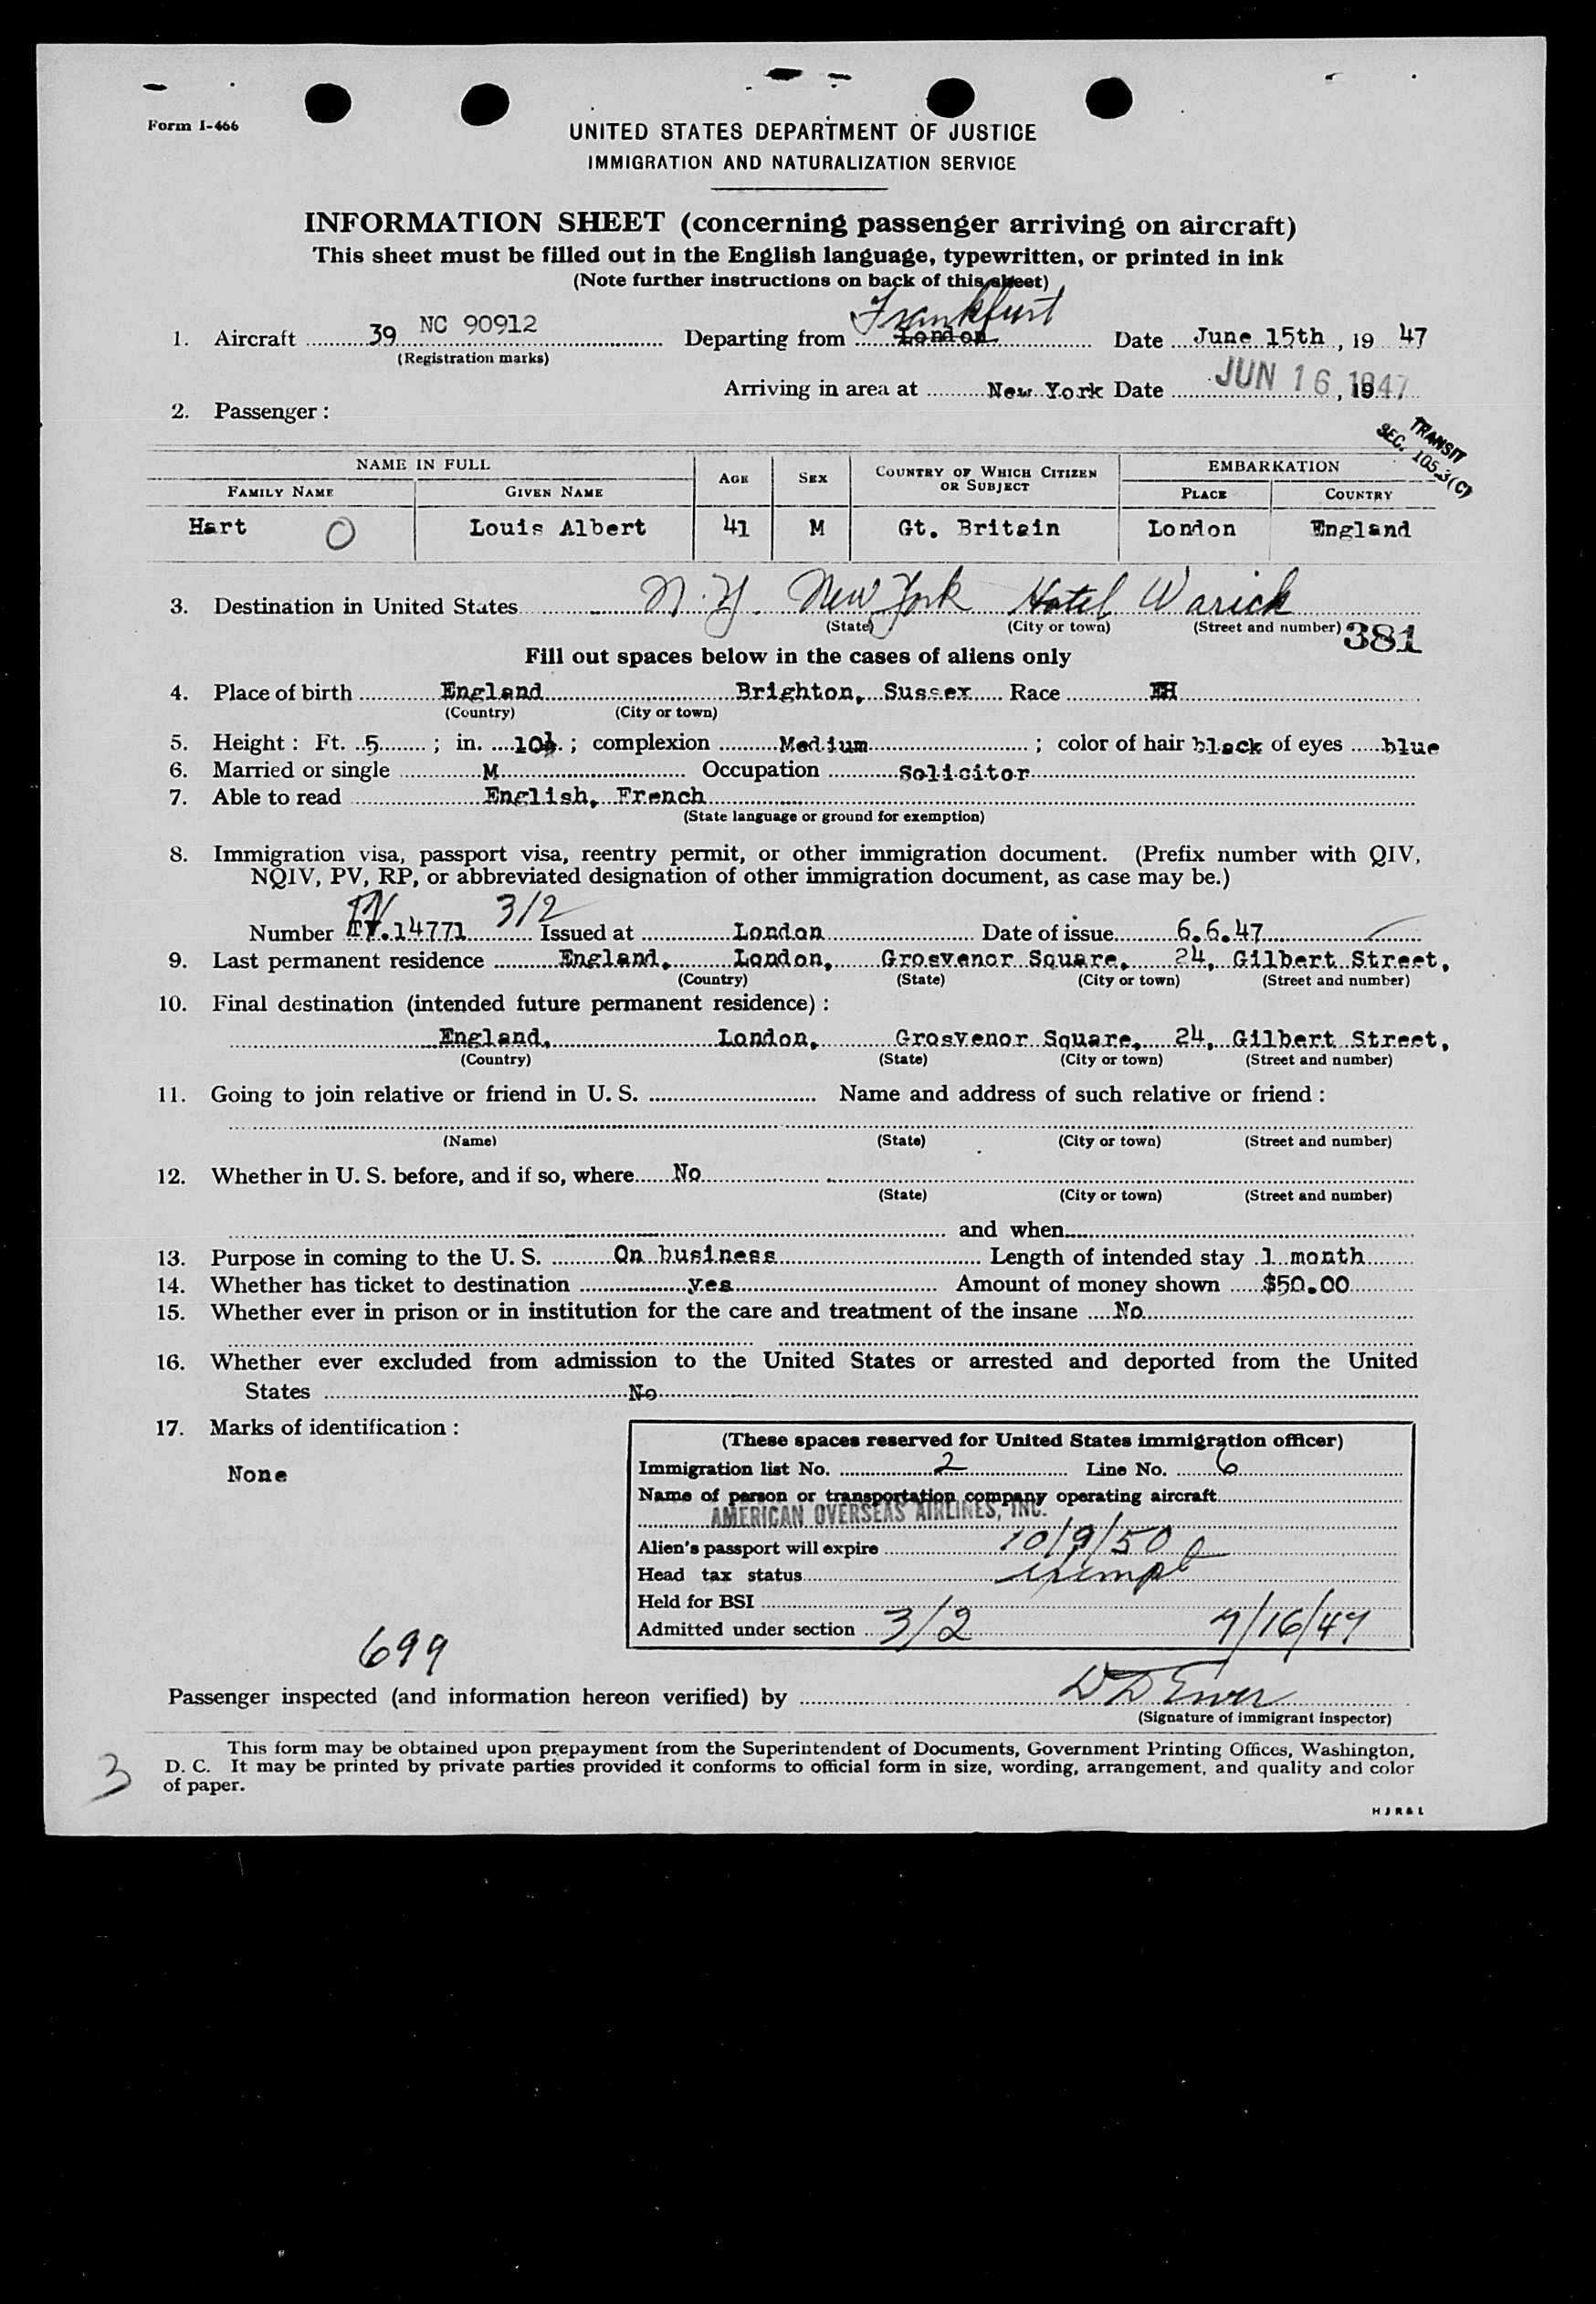 Form I-466
UNITED STATES DEPARTMENT OF JUSTICE
IMMIGRATION AND NATURALIZATION SERVICE
INFORMATION SHEET (concerning passenger arriving on aircraft)
This sheet must be filled out in the English language, typewritten, or printed in ink
(Note further instructions on back of this sheet)
Frankfurt
1. Aircraft 39 NC 90912 Departing from London Date June 15th, 19 47
(Registration marks)
Arriving in area at New York Date JUN 16, 1947
2. Passenger:
TRANSIT
SEC. 105.3(C)
NAME IN FULL AGE SEX COUNTRY OF WHICH CITIZEN OR SUBJECT EMBARKATION
FAMILY NAME GIVEN NAME PLACE COUNTRY
Hart O Louis Albert 41 M Gt. Britain London England
3. Destination in United States N.Y. New York Hotel Warick
(State) (City or town) (Street and number) 381
Fill out spaces below in the cases of aliens only
4. Place of birth England Brighton, Sussex Race
(Country) (City or town)
5. Height: Ft. 5; in. 10½; complexion Medium; color of hair black of eyes blue
6. Married or single M Occupation Solicitor
7. Able to read English, French
(State language or ground for exemption)
8. Immigration visa, passport visa, reentry permit, or other immigration document. (Prefix number with QIV,
NQIV, PV, RP, or abbreviated designation of other immigration document, as case may be.)
3/2
Number 14771 Issued at London Date of issue 6.6.47
9. Last permanent residence England, London, Grosvenor Square, 24, Gilbert Street,
(Country) (State) (City or town) (Street and number)
10. Final destination (intended future permanent residence):
England, London, Grosvenor Square, 24, Gilbert Street,
(Country) (State) (City or town) (Street and number)
11. Going to join relative or friend in U. S. Name and address of such relative or friend:
(Name) (State) (City or town) (Street and number)
12. Whether in U. S. before, and if so, where No
(State) (City or town) (Street and number)
and when
13. Purpose in coming to the U. S. On business Length of intended stay 1 month
14. Whether has ticket to destination yes Amount of money shown $50.00
15. Whether ever in prison or in institution for the care and treatment of the insane No
16. Whether ever excluded from admission to the United States or arrested and deported from the United
States No
17. Marks of identification:
None
(These spaces reserved for United States immigration officer)
Immigration list No. 2 Line No. 6
Name of person or transportation company operating aircraft
AMERICAN OVERSEAS AIRLINES, INC.
Alien's passport will expire 10/9/50
Head tax status exempt
Held for BSI
Admitted under section 3/2 7/16/47
699
Passenger inspected (and information hereon verified) by
(Signature of immigrant inspector)
This form may be obtained upon prepayment from the Superintendent of Documents, Government Printing Offices, Washington,
D. C. It may be printed by private parties provided it conforms to official form in size, wording, arrangement, and quality and color
of paper.
3
H J R & L